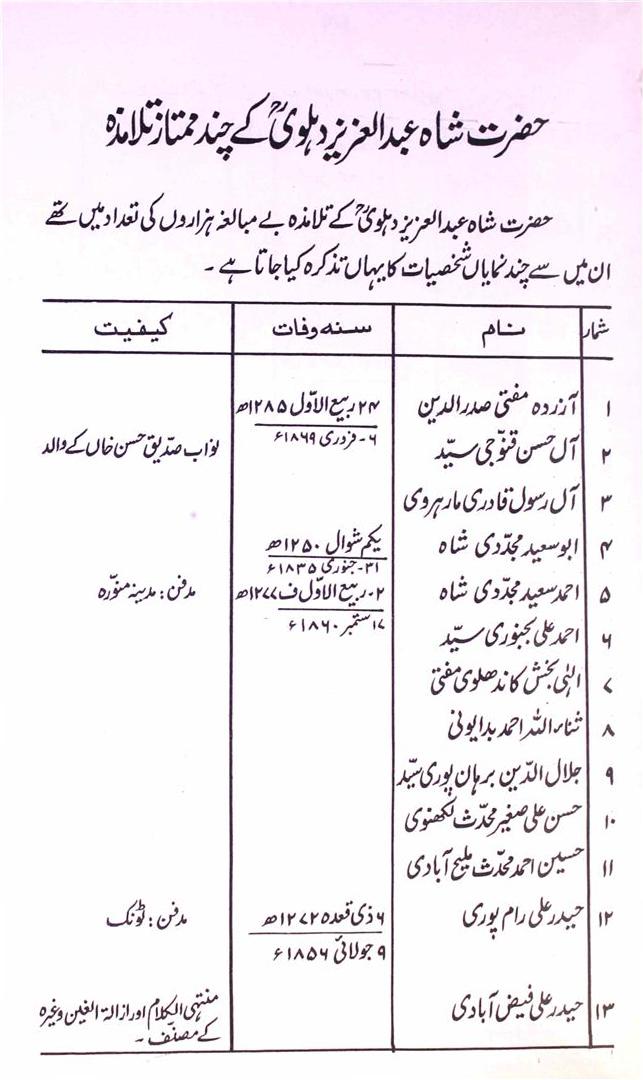 حضرت شاہ عبدالعزیز دہلویؒ کے چند ممتاز تلامذہ
حضرت شاہ عبدالعزیز دہلویؒ کے تلامذہ بے مبالغہ ہزاروں کی تعداد میں تھے
ان میں سے چند نمایاں شخصیات کا یہاں تذکرہ کیا جاتا ہے ۔
شمار نام سنہ وفات کیفیت
۱ آزردہ مفتی صدر الدین ۲۴ ربیع الاوّل ۱۲۸۵ھ
۶۔ فروری ۱۸۶۹ء
۲ آل حسن قنوجی سیّد نواب صدّیق حسن خاں کے والد
۳ آل رسول قادری مارہروی
۴ ابو سعید مجدّدی شاہ یکم شوال ۱۲۵۰ھ
۳۱۔ جنوری ۱۸۳۵ء
۵ احمد سعید مجدّدی شاہ ۲۔ ربیع الاوّل ف ۱۲۷۷ھ مدفن : مدینہ منوّرہ
۱۷ ستمبر ۱۸۶۰ء
۶ احمد علی بجنوری سیّد
۷ الٰہی بخش کاندھلوی مفتی
۸ ثناء اللہ احمد بدایونی
۹ جلال الدّین برہان پوری سیّد
۱۰ حسن علی صغیر محدّث لکھنوی
۱۱ حسین احمد محدّث ملیح آبادی
۱۲ حیدر علی رام پوری ۶ ذی قعدہ ۱۲۷۲ھ مدفن : ٹونک
۹ جولائی ۱۸۵۶ء
۱۳ حیدر علی فیض آبادی منتہی الکلام اور ازالۃ الغین وغیرہ
کے مصنّف ۔